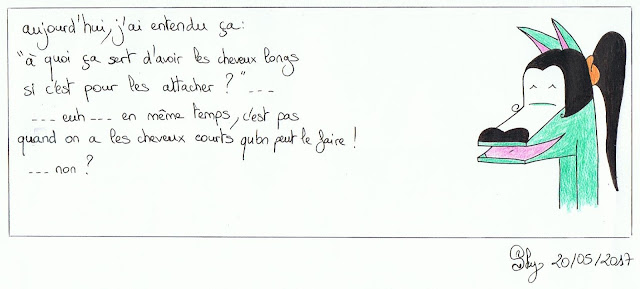 aujourd'hui, j'ai entendu ça:
"à quoi ça sert d'avoir les cheveux longs
si c'est pour les attacher ?" ---
--- euh --- en même temps, c'est pas
quand on a les cheveux courts qu'on peut le faire !
--- non ?
20/05/2017